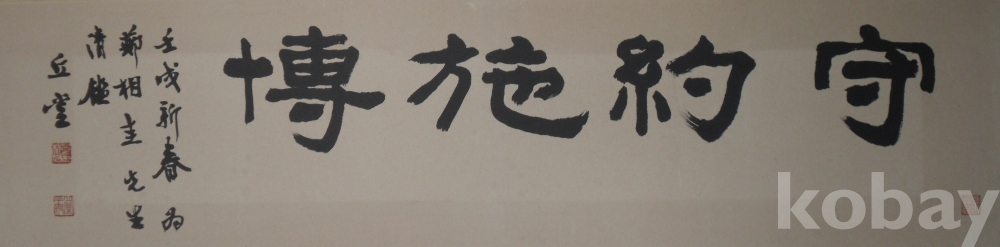 守約施博
壬戌新春為
鄭相圭先生
清鑑
丘堂
kobay